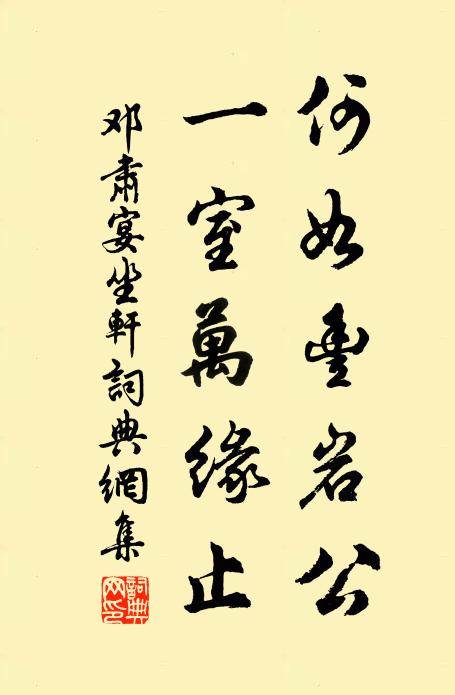 何如豊岩公
一室萬緣止
邓肅宴坐軒詞典網集
詞典网印